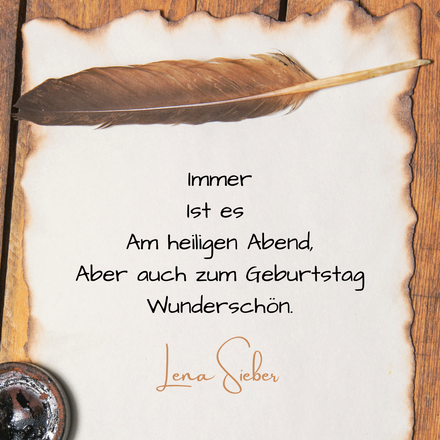 Immer
Ist es
Am heiligen Abend,
Aber auch zum Geburtstag
Wunderschön.
Lena Sieber